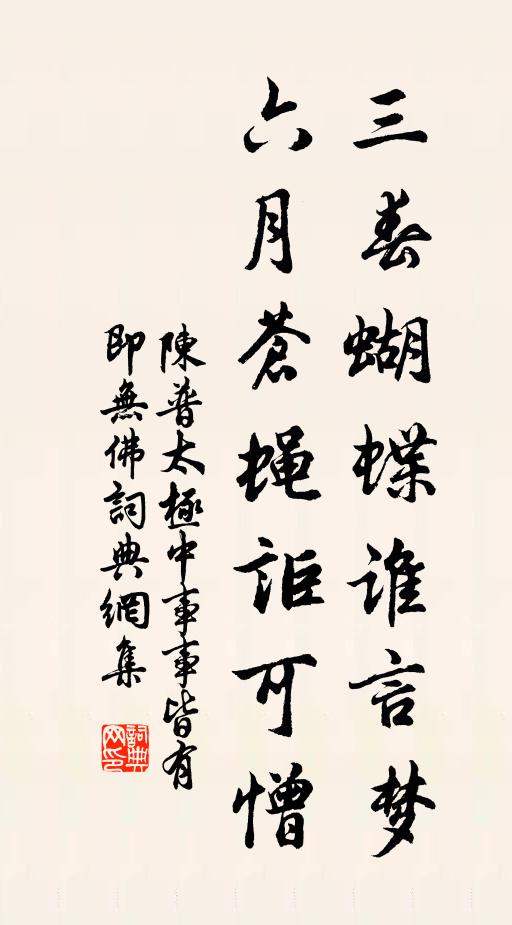 三春蝴蝶谁言梦
六月蒼蝇詎可憎
陳普太極中事事皆有
即無佛詞典網集
詞典网印